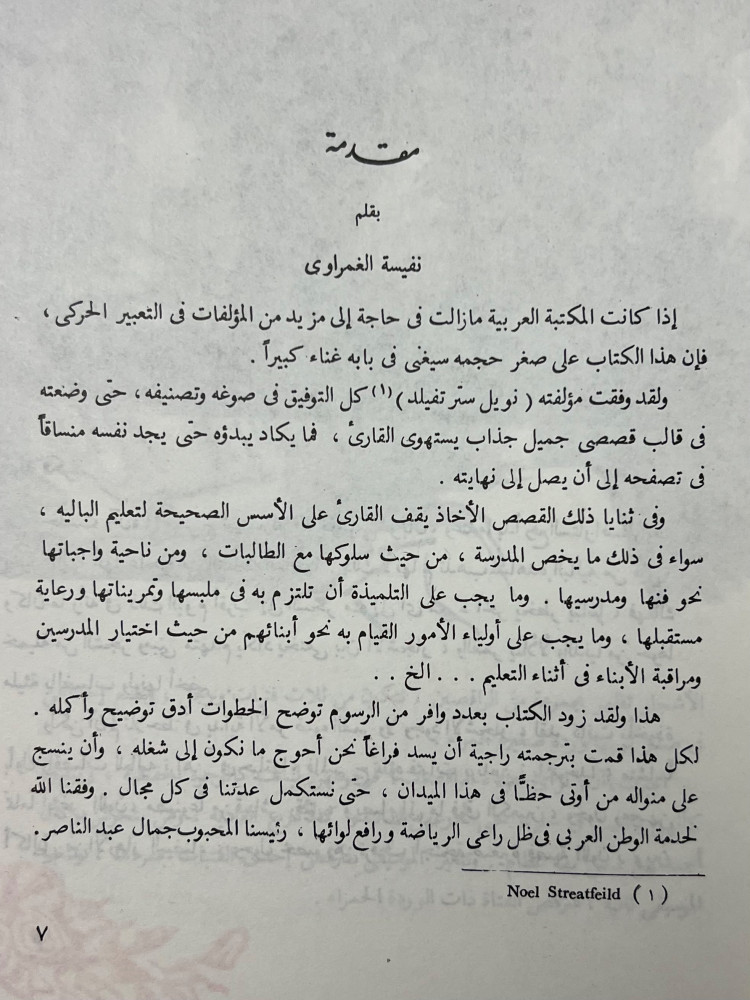 مقدمة
بقلم
نفيسة الغمراوى
إذا كانت المكتبة العربية مازالت فى حاجة إلى مزيد من المؤلفات فى التعبير الحركى ،
فإن هذا الكتاب على صغر حجمه سيغنى فى بابه غناء كبيراً .
ولقد وفقت مؤلفته ( نويل ستر تفيلد ) (١) كل التوفيق فى صوغه وتصنيفه ، حتى وضعته
فى قالب قصصى جميل جذاب يستهوى القارئ ، فما يكاد يبدؤه حتى يجد نفسه منساقاً
فى تصفحه إلى أن يصل إلى نهايته .
وفى ثنايا ذلك القصص الأخاذ يقف القارئ على الأسس الصحيحة لتعليم الباليه ،
سواء فى ذلك ما يخص المدرسة ، من حيث سلوكها مع الطالبات ، ومن ناحية واجباتها
نحو فنها ومدرسيها . وما يجب على التلميذة أن تلتزم به فى ملبسها وتمريناتها ورعاية
مستقبلها ، وما يجب على أولياء الأمور القيام به نحو أبنائهم من حيث اختيار المدرسين
ومراقبة الأبناء فى أثناء التعليم . . . الخ . .
هذا ولقد زود الكتاب بعدد وافر من الرسوم توضح الخطوات أدق توضيح وأكمله .
لكل هذا قمت بترجمته راجية أن يسد فراغاً نحن أحوج ما نكون إلى شغله ، وأن ينسج
على منواله من أوتى حظًّا فى هذا الميدان ، حتى نستكمل عدتنا فى كل مجال . وفقنا الله
لخدمة الوطن العربى فى ظل راعى الرياضة ورافع لوائها ، رئيسنا المحبوب جمال عبد الناصر .
(١) Noel Streatfeild
٧